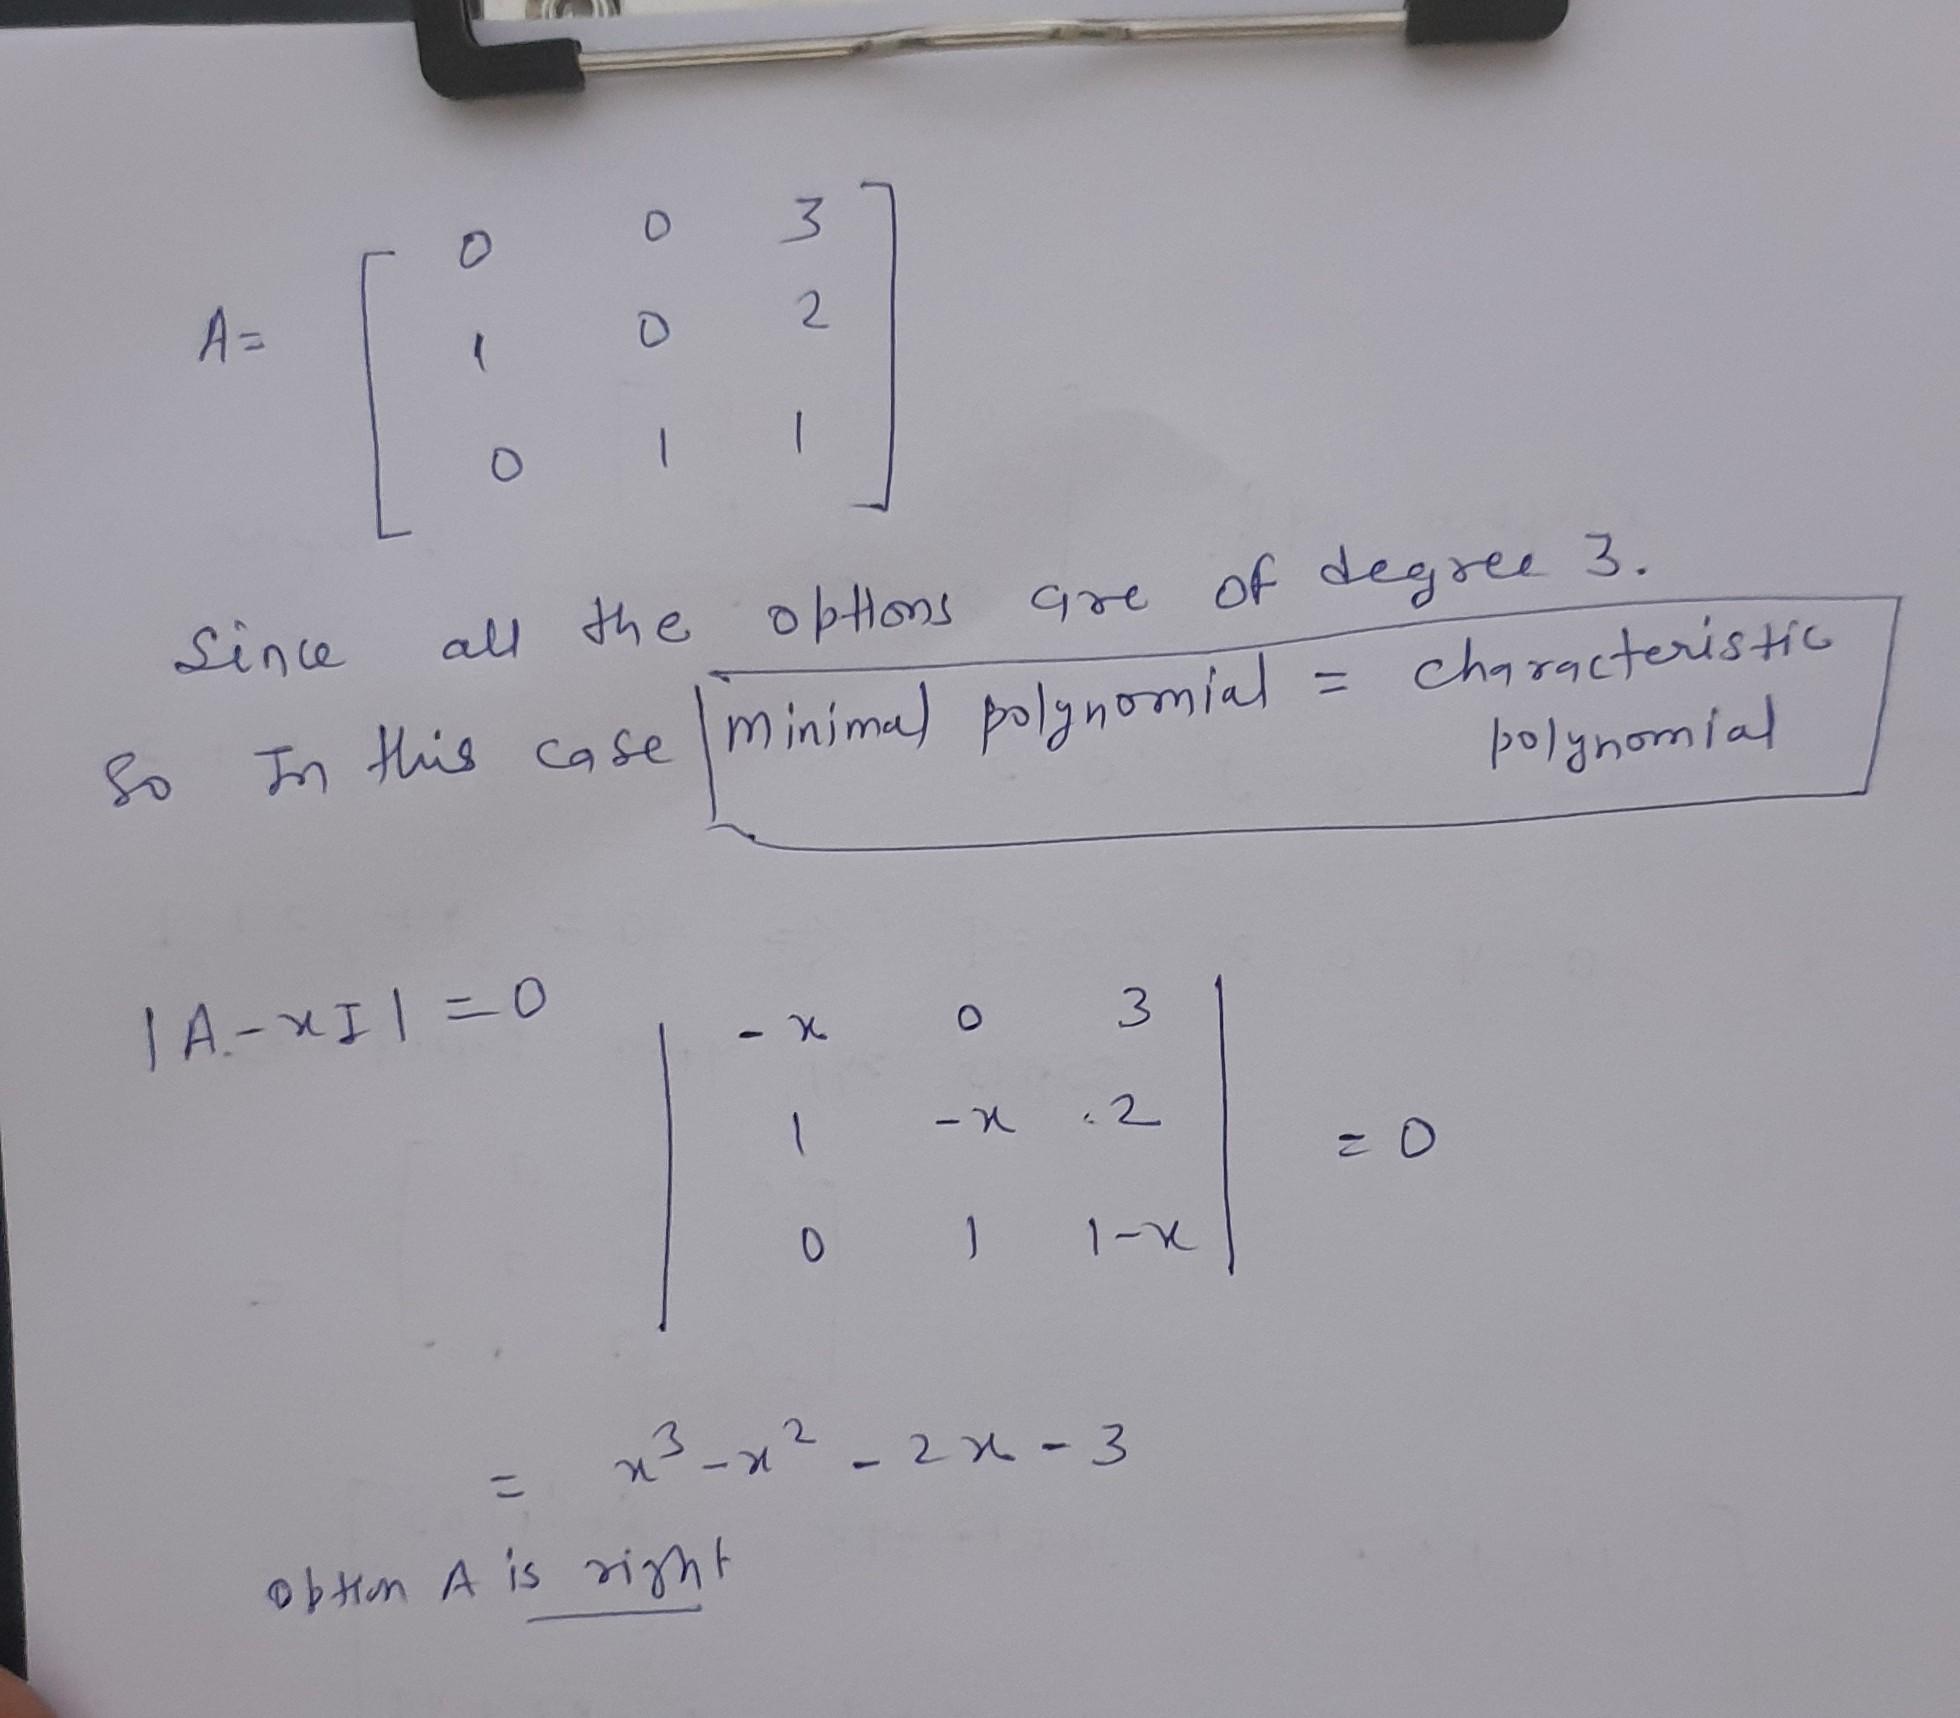 A= [ 0 0 3
1 0 2
0 1 1 ]
Since all the options are of degree 3.
So In this case minimal polynomial = characteristic
polynomial
|A-xI| = 0 | -x 0 3
1 -x 2 | = 0
0 1 1-x |
= x³-x²-2x-3
option A is right